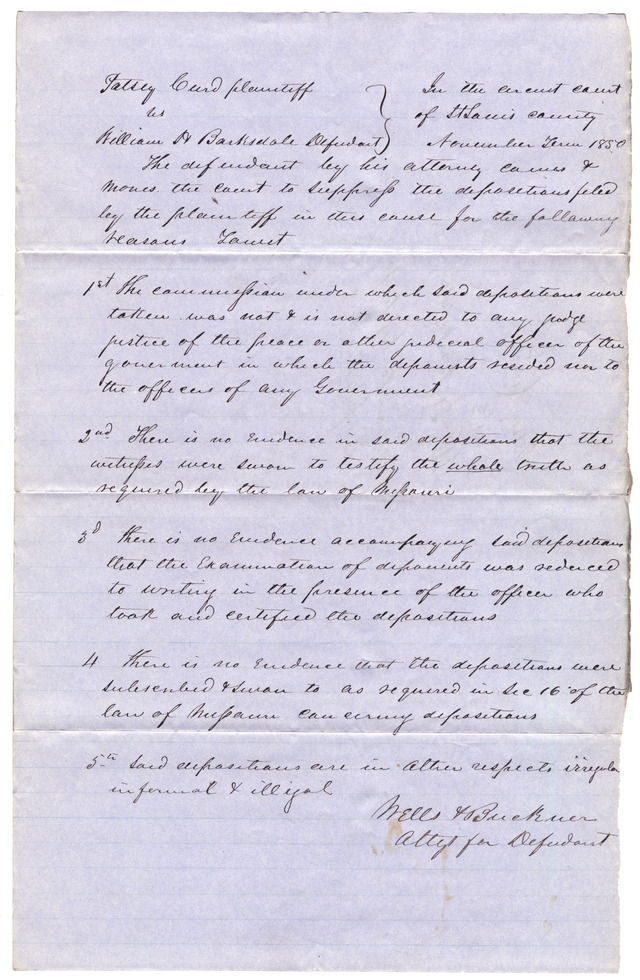 Patsey Curd plaintiff
vs
William H Barksdale Defendant
In the circuit court
of St Louis county
November Term 1850
The defendant by his attorney comes &
moves the court to suppress the depositions filed
by the plaintiff in this cause for the following
reasons Towit
1st the commission under which said depositions were
taken was not & is not directed to any judge
justice of the peace or other judicial officer of the
goverment in which the deponents resided nor to
the officers of any Goverment
2nd There is no Evidence in said depositions that the
witnesses were sworn to testify the whole truth as
required by the law of Missouri
3d there is no Evidence accompaying said depositions
that the Examination of deponents was reduced
to writing in the presence of the officer who
took and certified the depositions
4 there is no Evidence that the depositions were
subscribed & sworn to as required in Sec 16 of the
law of Missouri concerning depositions
5th Said depositions are in other respects irregular
informal & illigal
Wells & Buckner
Attys for Defendant